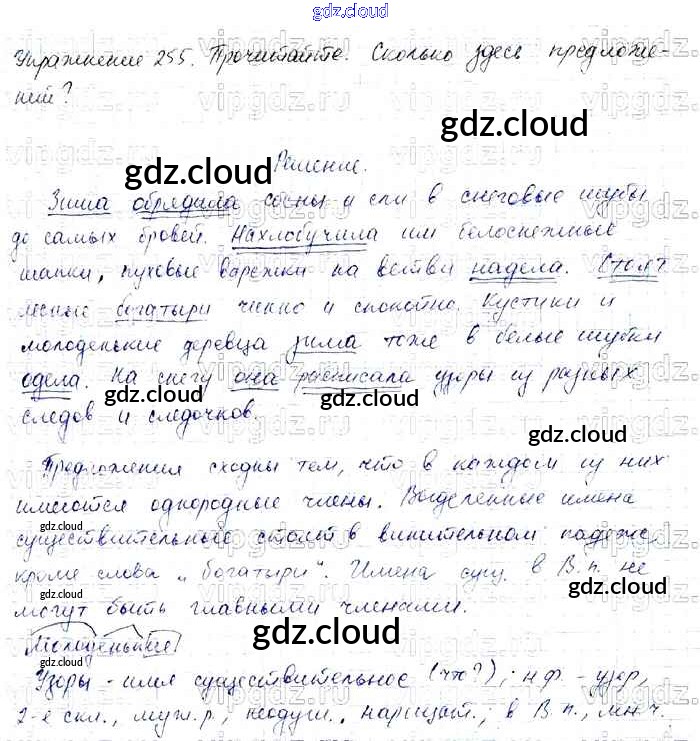 gdz.cloud
Упражнение 255. Прочитайте. Сколько здесь предложе-
ний?
Решение.
Зима обрядила сосны и ели в снеговые шубы
до самых бровей. Нахлобучила им белоснежные
шапки, пуховые варежки на ветви надела. Стоят
лесные богатыри чинно и спокойно. Кустики и
молоденькие деревца зима тоже в белые шубки
одела. На снегу она расписала узоры из разных
следов и следочков.
Предложения сходны тем, что в каждом из них
имеются однородные члены. Выделенные имена
существительные стоят в винительном падеже,
кроме слова „богатыри“. Имена сущ. в В.п. не
могут быть главными членами.
Молоденькие
Узоры - имя существительное (что?); н.ф. - узор,
2-е скл., муж. р., неодуш., нарицат.; в В.п., мн.ч.